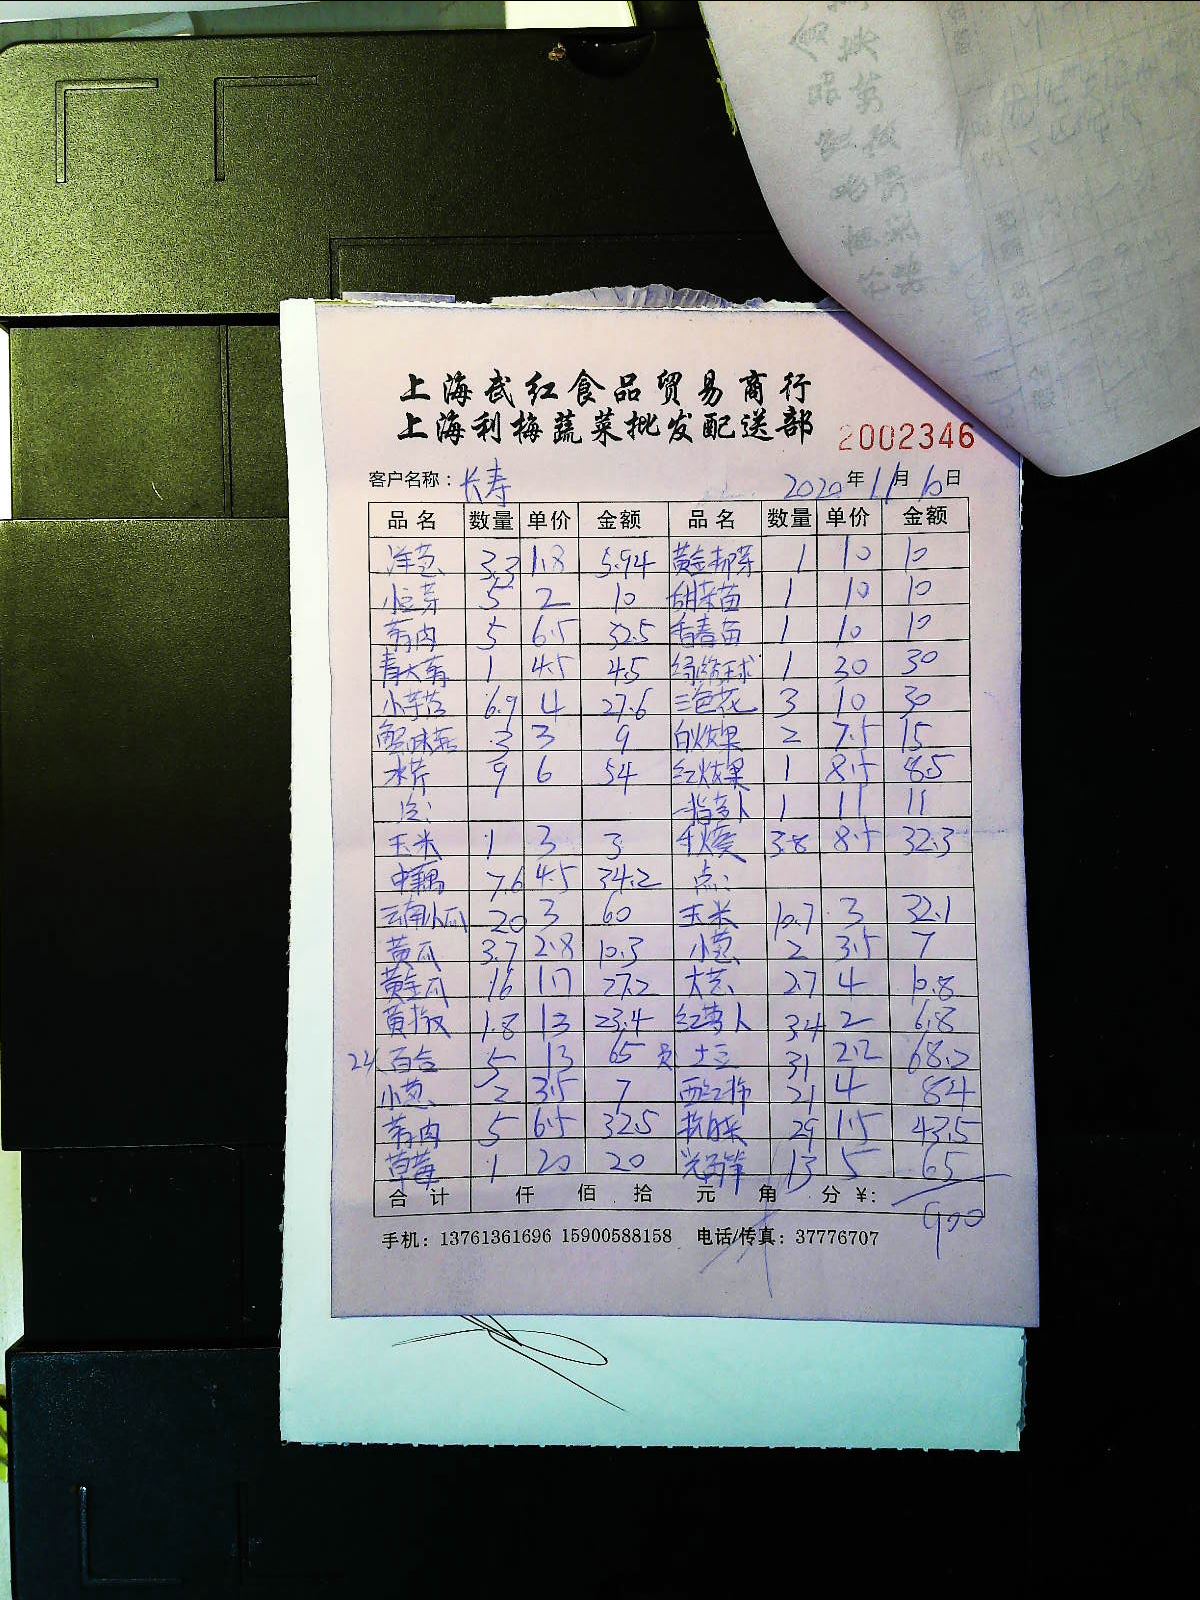 上海武红食品贸易商行
上海利梅蔬菜批发配送部
2002346
客户名称：长寿 2020年11月10日
品名 数量 单价 金额 品名 数量 单价 金额
洋葱 3.3 1.8 5.94 黄金柳芽 1 10 10
小豆芽 5 2 10 甜菜苗 1 10 10
青肉 5 6.5 32.5 香春苗 1 10 10
青大 1 4.5 4.5 1 30 30
小芋艿 6.9 4 27.6 三色花 3 10 30
蟹味菇 3 3 9 白火龙果 2 7.5 15
水芹 9 6 54 红火龙果 1 8.5 8.5
冷： 一指萝卜 1 11 11
玉米 1 3 3 千秋葵 3.8 8.5 32.3
中藕 7.6 4.5 34.2 点：
云南小瓜 20 3 60 玉米 10.7 3 32.1
黄瓜 3.7 2.8 10.3 小葱 2 3.5 7
黄金瓜 16 1.7 27.2 大芒 2.7 4 10.8
黄椒 1.8 13 23.4 红萝卜 3.4 2 6.8
24 百合 5 13 65 员 土豆 31 2.2 68.2
小葱 2 3.5 7 西红柿 21 4 84
青肉 5 6.5 32.5 29 1.5 43.5
草莓 1 20 20 光 13 5 65
合计 仟 佰 拾 元 角 分 ¥： 900
手机：13761361696 15900588158 电话/传真：37776707